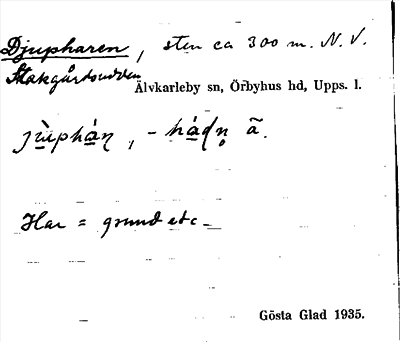 Djupharen, sten ca 300 m. N.V.
Stakgårdsudden
Älvkarleby sn, Örbyhus hd, Upps. l.
jùphán, -hádn ã.
Har = grund etc
Gösta Glad 1935.